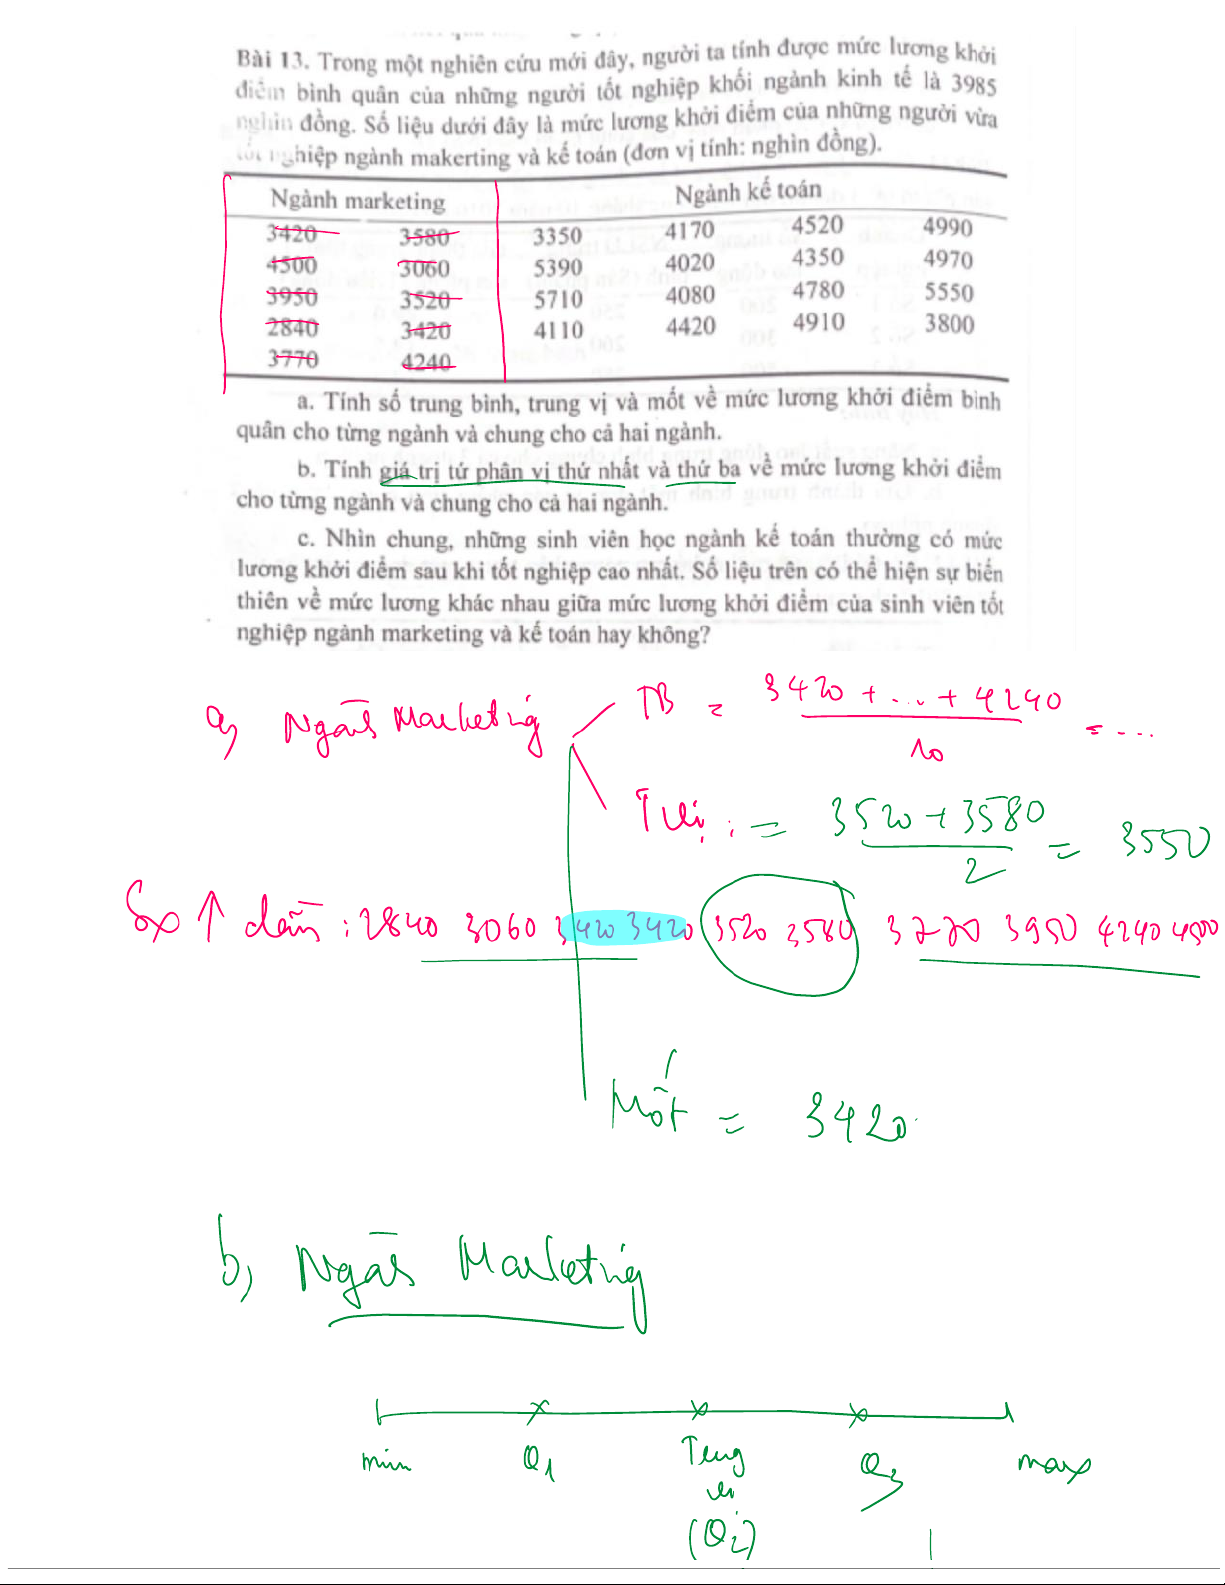 Bài 13. Trong một nghiên cứu mới đây, người ta tính được mức lương khởi
điểm bình quân của những người tốt nghiệp khối ngành kinh tế là 3985
nghìn đồng. Số liệu dưới đây là mức lương khởi điểm của những người vừa
tốt nghiệp ngành makerting và kế toán (đơn vị tính: nghìn đồng).
Ngành marketing Ngành kế toán
3420 3580 3350 4170 4520 4990
4500 3060 5390 4020 4350 4970
3950 3520 5710 4080 4780 5550
2840 3420 4110 4420 4910 3800
3770 4240
a. Tính số trung bình, trung vị và mốt về mức lương khởi điểm bình
quân cho từng ngành và chung cho cả hai ngành.
b. Tính giá trị tứ phân vị thứ nhất và thứ ba về mức lương khởi điểm
cho từng ngành và chung cho cả hai ngành.
c. Nhìn chung, những sinh viên học ngành kế toán thường có mức
lương khởi điểm sau khi tốt nghiệp cao nhất. Số liệu trên có thể hiện sự biến
thiên về mức lương khác nhau giữa mức lương khởi điểm của sinh viên tốt
nghiệp ngành marketing và kế toán hay không?
a, Ngành Marketing TB = 3420 + ... + 4240 / 10 = ....
T vị : = 3520 + 3580 / 2 = 3550
Sx ↑ dần : 2840 3060 3420 3420 3520 3580 3770 3950 4240 4500
Mốt = 3420
b, Ngành Marketing
min Q1 Trung vị (Q2) Q3 max